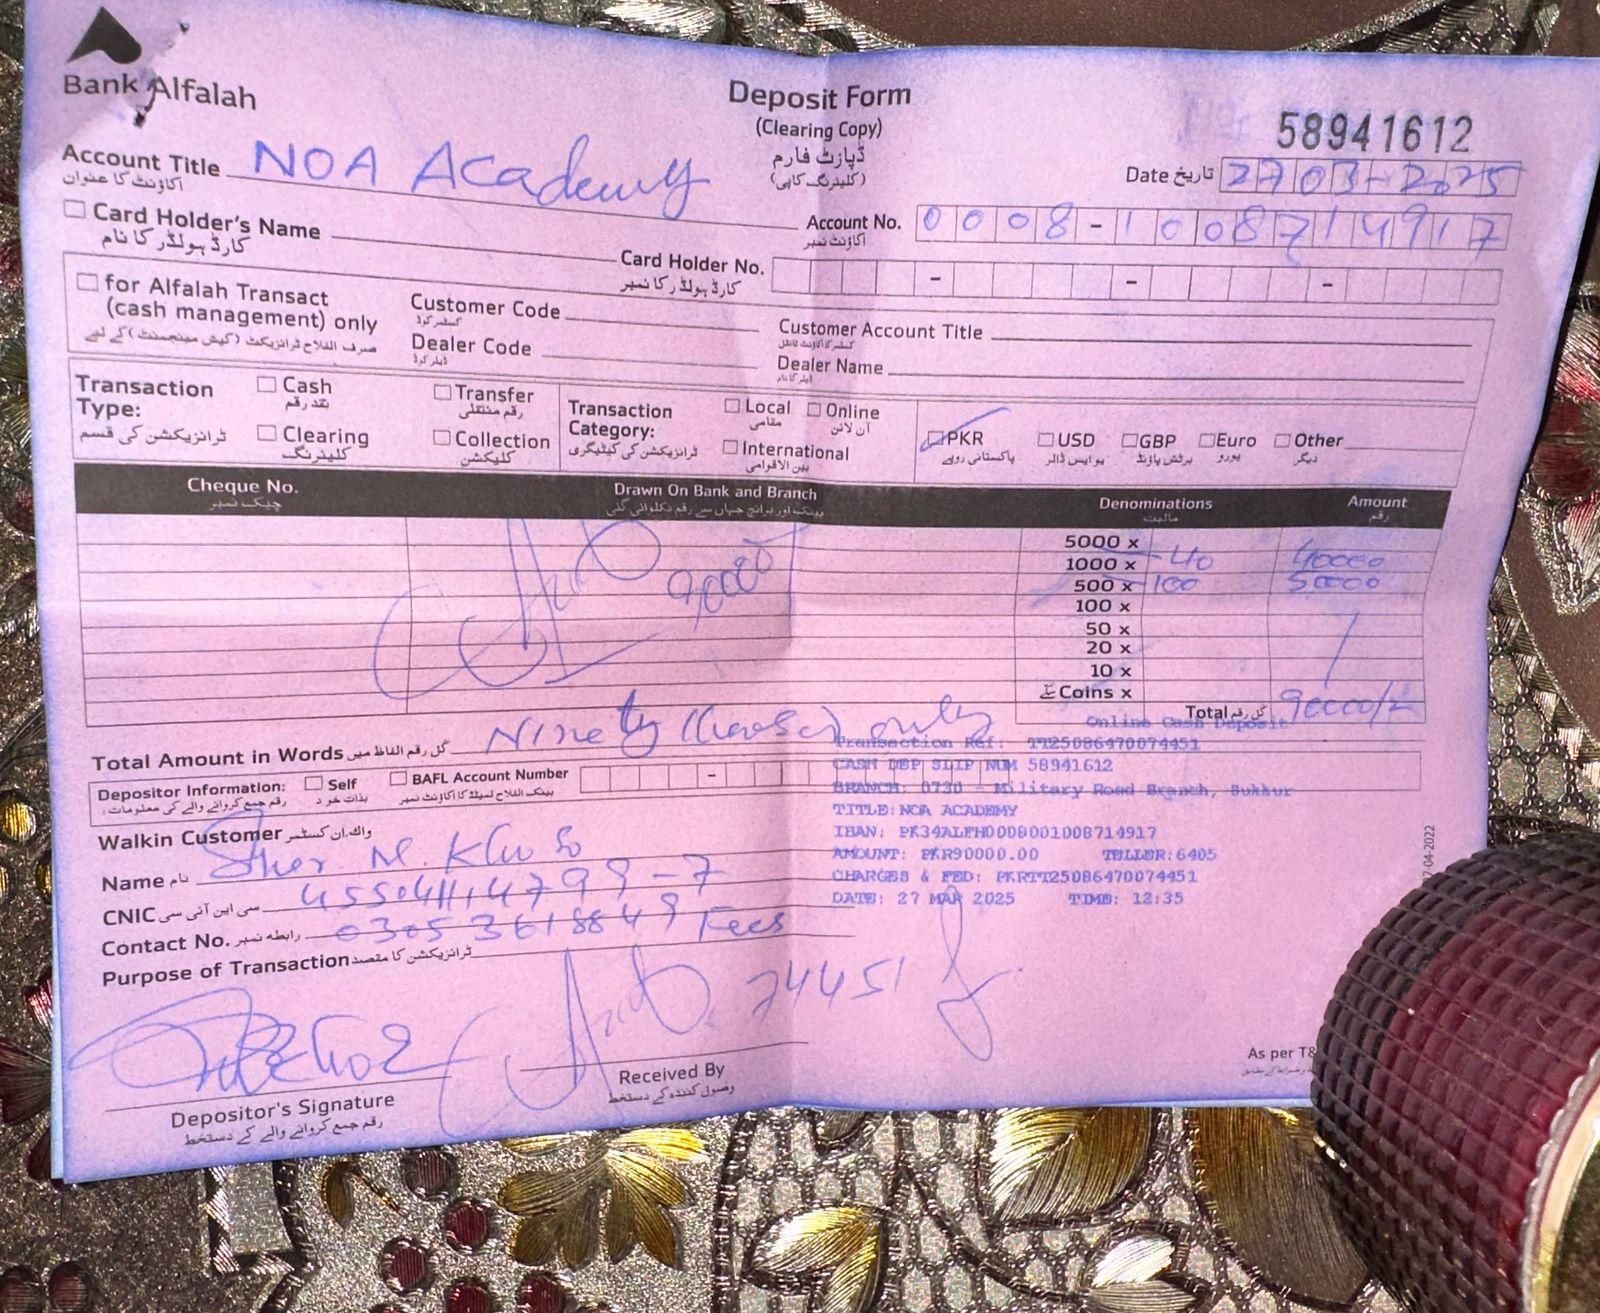 Bank Alfalah
Deposit Form
(Clearing Copy)
ڈپازٹ فارم
(کلیئرنگ کاپی)
58941612
Date تاریخ 27 03-2025
Account Title NOA Academy
اکاؤنٹ کا عنوان
Account No. 0008-1008714917
اکاؤنٹ نمبر
Card Holder's Name
کارڈ ہولڈر کا نام
Card Holder No.
کارڈ ہولڈر کا نمبر
for Alfalah Transact
(cash management) only
صرف الفلاح ٹرانزیکٹ (کیش مینجمنٹ) کے لیے
Customer Code
کسٹمر کوڈ
Customer Account Title
کسٹمر کا اکاؤنٹ ٹائٹل
Dealer Code
ڈیلر کوڈ
Dealer Name
ڈیلر کا نام
Transaction Type:
ٹرانزیکشن کی قسم
Cash
نقد رقم
Transfer
رقم منتقلی
Clearing
کلیئرنگ
Collection
کلیکشن
Transaction Category:
ٹرانزیکشن کی کیٹیگری
Local
مقامی
Online
آن لائن
International
بین الاقوامی
PKR
پاکستانی روپے
USD
یو ایس ڈالر
GBP
برٹش پاؤنڈ
Euro
یورو
Other
دیگر
Cheque No.
چیک نمبر
Drawn On Bank and Branch
بینک اور برانچ جہاں سے رقم نکلوائی گئی
Denominations
مالیت
Amount
رقم
5000 x
1000 x 40 40000
500 x 100 50000
100 x
50 x
20 x
10 x
Coins x سکے
90000
Total کل رقم 90000/-
Total Amount in Words کل رقم الفاظ میں Ninety only
Online Cash Deposit
Transaction Ref: TT25086470074451
CASH DEP SLIP NUM 58941612
BRANCH: 0730 - Military Road Branch, Sukkur
TITLE:NOA ACADEMY
IBAN: PK34ALFH0008001008714917
AMOUNT: PKR90000.00 TELLER:6405
CHARGES & FED: PKRTT25086470074451
DATE: 27 MAR 2025 TIME: 12:35
Depositor Information:
رقم جمع کروانے والے کی معلومات:
Self
بذات خود
BAFL Account Number
بینک الفلاح لمیٹڈ کا اکاؤنٹ نمبر
Walkin Customer واک ان کسٹمر
Name نام Sher M.
CNIC سی این آئی سی 455041114799-7
Contact No. رابطہ نمبر 0305 3618849
Purpose of Transaction ٹرانزیکشن کا مقصد Fees
74451
Depositor's Signature
رقم جمع کروانے والے کے دستخط
Received By
وصول کنندہ کے دستخط
As per T&
7-04-2022